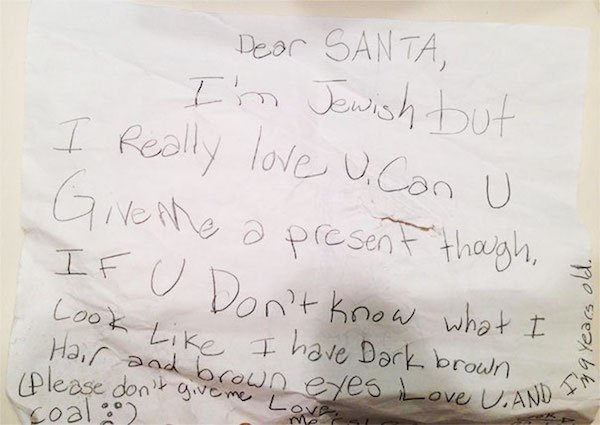 Dear SANTA,
I'm Jewish but
I Really love U. Can U
Give Me a present though,
IF U Don't know what I
Look Like I have Dark brown
Hair and brown eyes Love U. AND
(Please don't give me Love
coal :)
I'm 9 years old.